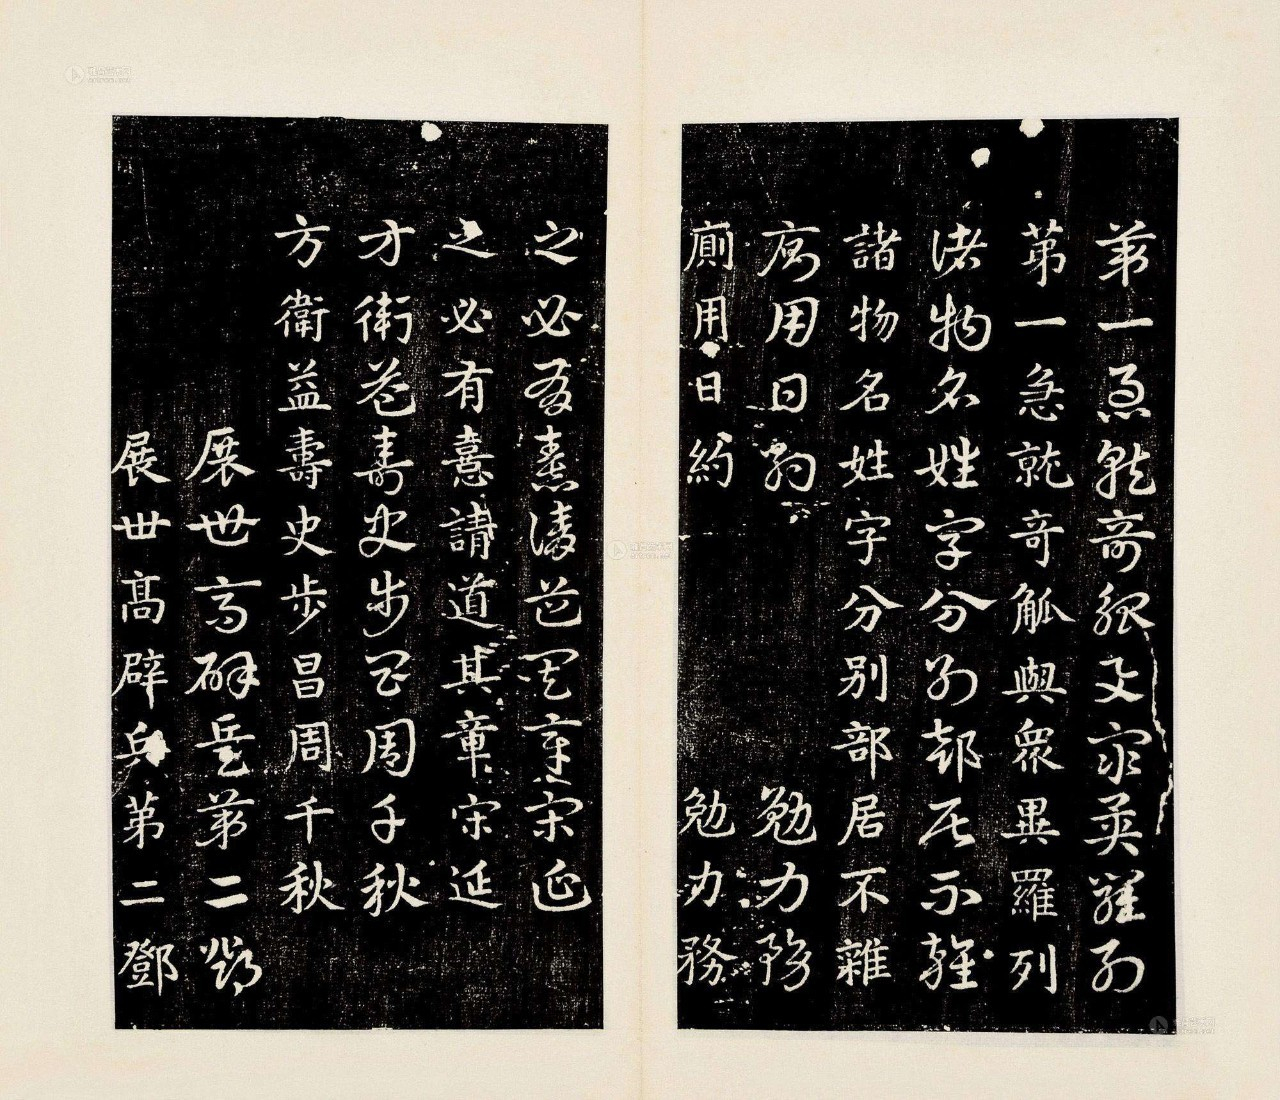 第一急就奇觚与众異羅列
第一急就奇觚與衆異羅列
诸物名姓字分别部居不雜
諸物名姓字分别部居不雜
廁用日約 勉力務
廁用日約 勉力務
之必有憙請道其章宋延
之必有憙請道其章宋延
方衛益壽史步昌周千秋
方衛益壽史步昌周千秋
展世高辟兵第二鄧
展世高辟兵第二鄧